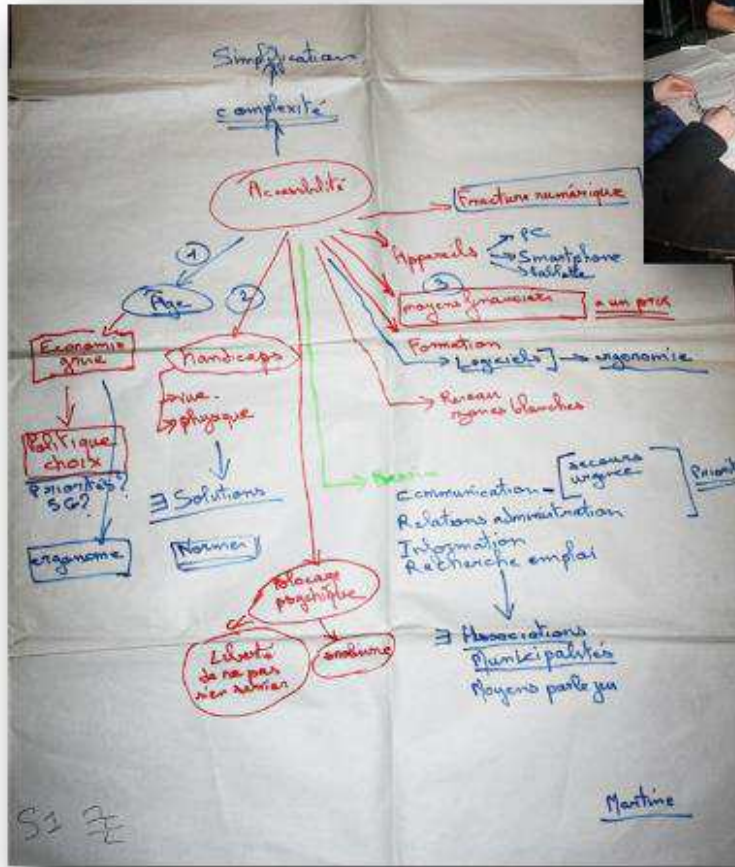 Simplification
complexité
Accessibilité
Fracture numérique
1
Âge
2
Appareils
PC
Smartphone
tablette
3
moyens financiers
a un prix
Economie
handicaps
vue
physique
Formation
Logiciels
ergonomie
Réseau
zones blanches
Politique
choix
Priorités?
5G?
ergonome
∃ Solutions
Normes
Besoin
Communication
secours
urgence
Priorité
Relations administration
Information
Recherche emploi
Blocage
psychique
Liberté
de ne pas
s'en servir
∃ Associations
Municipalités
Moyens par le jeu
Martine
S1